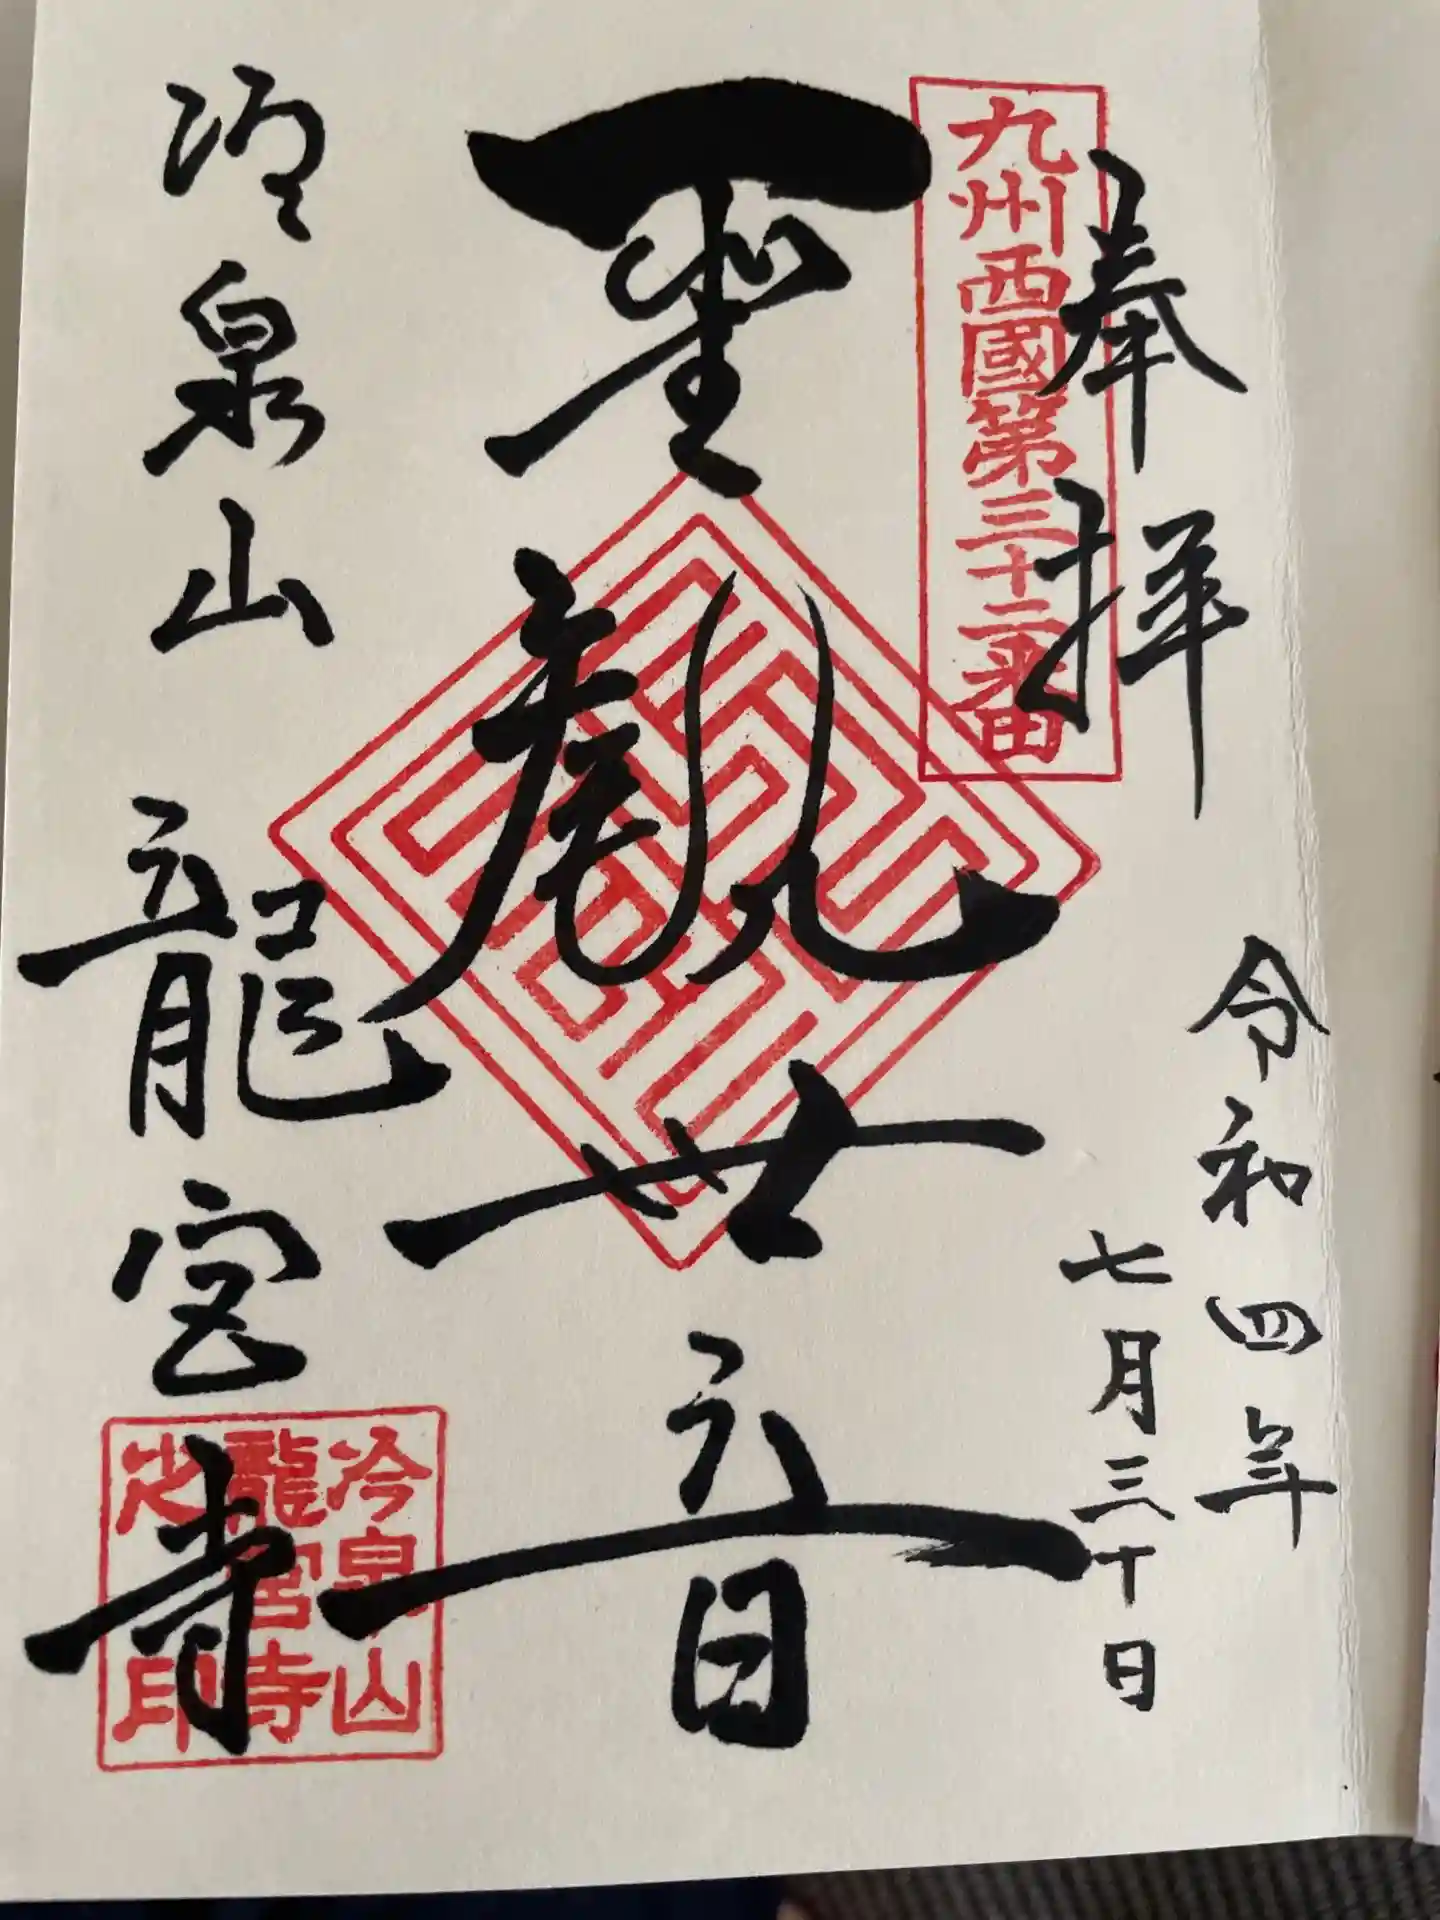 奉拝
令和四年
七月三十日
九州西國第三十二番
聖観世音
冷泉山 龍宮寺
冷泉山
龍宮寺
之印